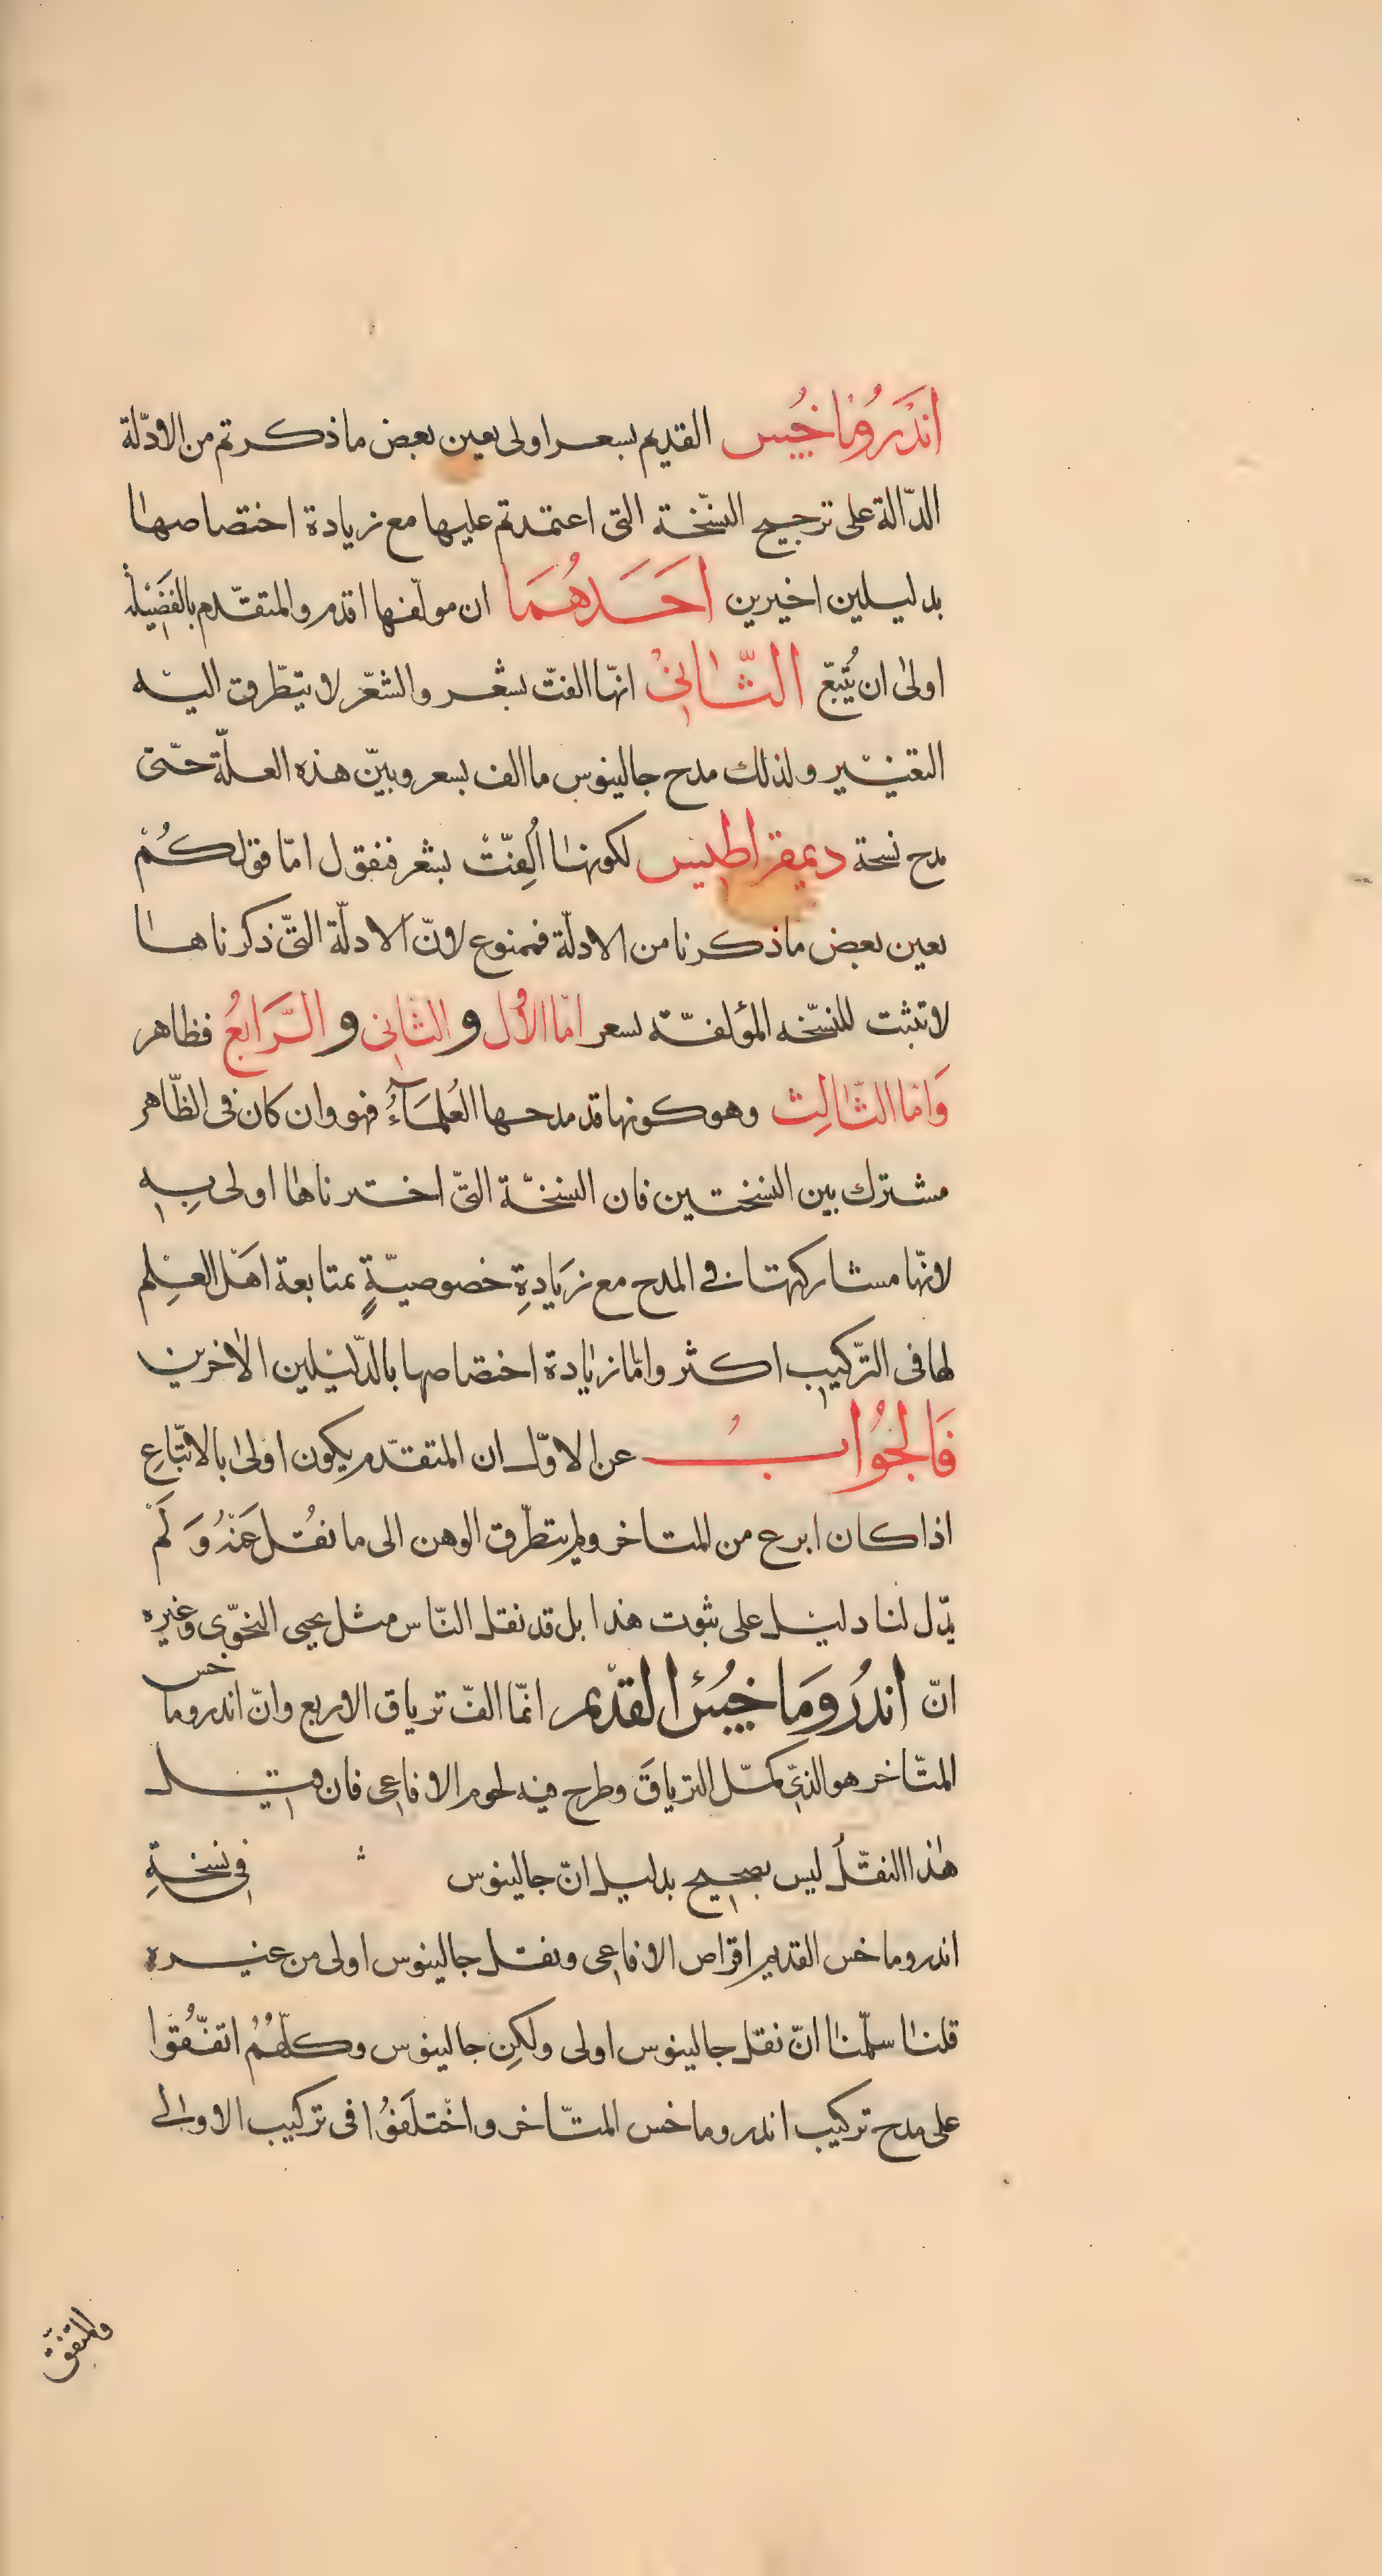 اندروماخيس القديم بسعر اولى بعين بعض ما ذكرتم من الادلّة
الدّالة على ترجيح النسّخة التى اعتمدتم عليها مع زيادة اختصاصها
بدليلين اخيرين احدهما ان مولّفها اقدم والمتقدّم بالفضيلة
اولى ان يُتّبع الثّانى انّها الفتّ بشعر والشعّر لا يتطّرق اليه
التغيّير ولذلك مدح جالينوس ما الف بسعر وبيّن هذه العلّة حتّى
مدح نسخة ديمقراطيس لكونها اُلِفتّ بشعر فنقول امّا قولكُم
بعين بعض ما ذكرنا من الادلّة فممنوع لانّ الادلّة التّى ذكرناها
لا تثبت للنسّخه المؤلفّة بسعر امّا الاُول والثانى والرّابعُ فظاهر
وَامّا الثّالِث وهو كونها قد مدحها العُلمَآءُ فهو وان كان فى الظّاهر
مشترك بين النسختين فان النسخّة التىّ اخترناها اولى بِه
لانهّا مشاركتها فى المدح مع زيَادةِ خصوصيّةٍ بمتابعة اهَل العِلم
لها فى الترّكيب اكثر وامّا زيادة اختصاصها بالدّليلين الاخرين
فَالجوُابُ عن الاوّل ان المتقدّم يكون اولى بالاتبّاعِ
اذا كان ابرع من المتاخر ولم يتطرّق الوهن الى ما نقُل عَنهُ وَلَم
يدّل لنا دليل على ثبوت هذا بل قد نقل النّاس مثل يحيى النحوّى وغيره
انّ اندرُومَاخيُس القدّيم انمّا الفّ ترياق الاربع وانّ اندروماخس
المتّاخر هو الذىّ كمّل الترياقَ وطرح فيه لحوم الافاعى فان قيل
هذا النقلُ ليس بصحيح بدليل انّ جالينوس فى نسخةِ
اندروماخس القديم اقراص الافاعى ونقل جالينوس اولى من غيره
قلنا سلمّنا انّ نقل جالينوس اولى ولكِن جالينوس وكلّهُمُ اتفّقُوا
على مدح تركيب اندروماخس المتّاخر واختلَفوُا فى تركيب الاوالى
والمتفّق